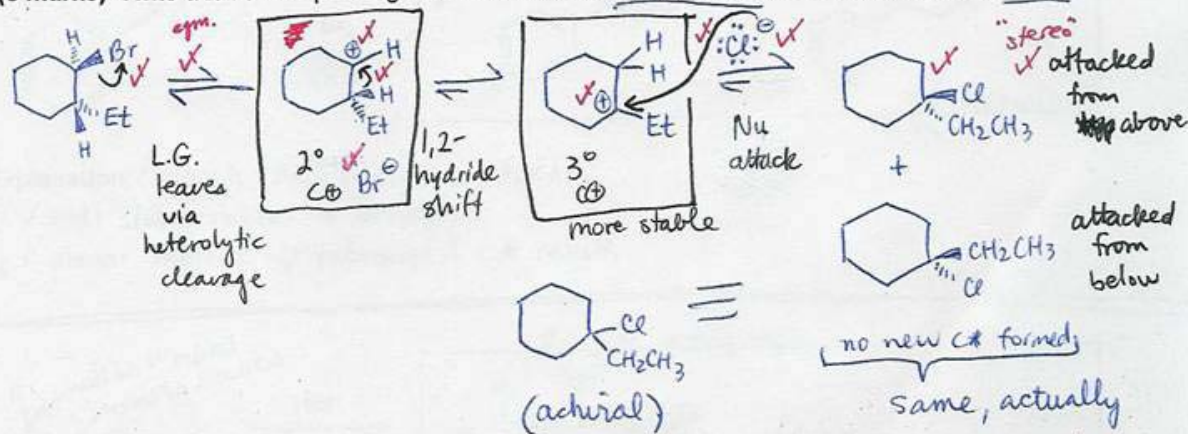 H
Br
Et
H
eqm.
L.G.
leaves
via
heterolytic
cleavage
⊕
H
H
Et
2°
C⊕
Br⊖
1,2-
hydride
shift
H
H
⊕
Et
3°
C⊕
more stable
:Cl:⊖
Nu
attack
"stereo"
Cl
CH2CH3
attacked
from
above
+
CH2CH3
Cl
attacked
from
below
no new C* formed;
same, actually
Cl
CH2CH3
(achiral)